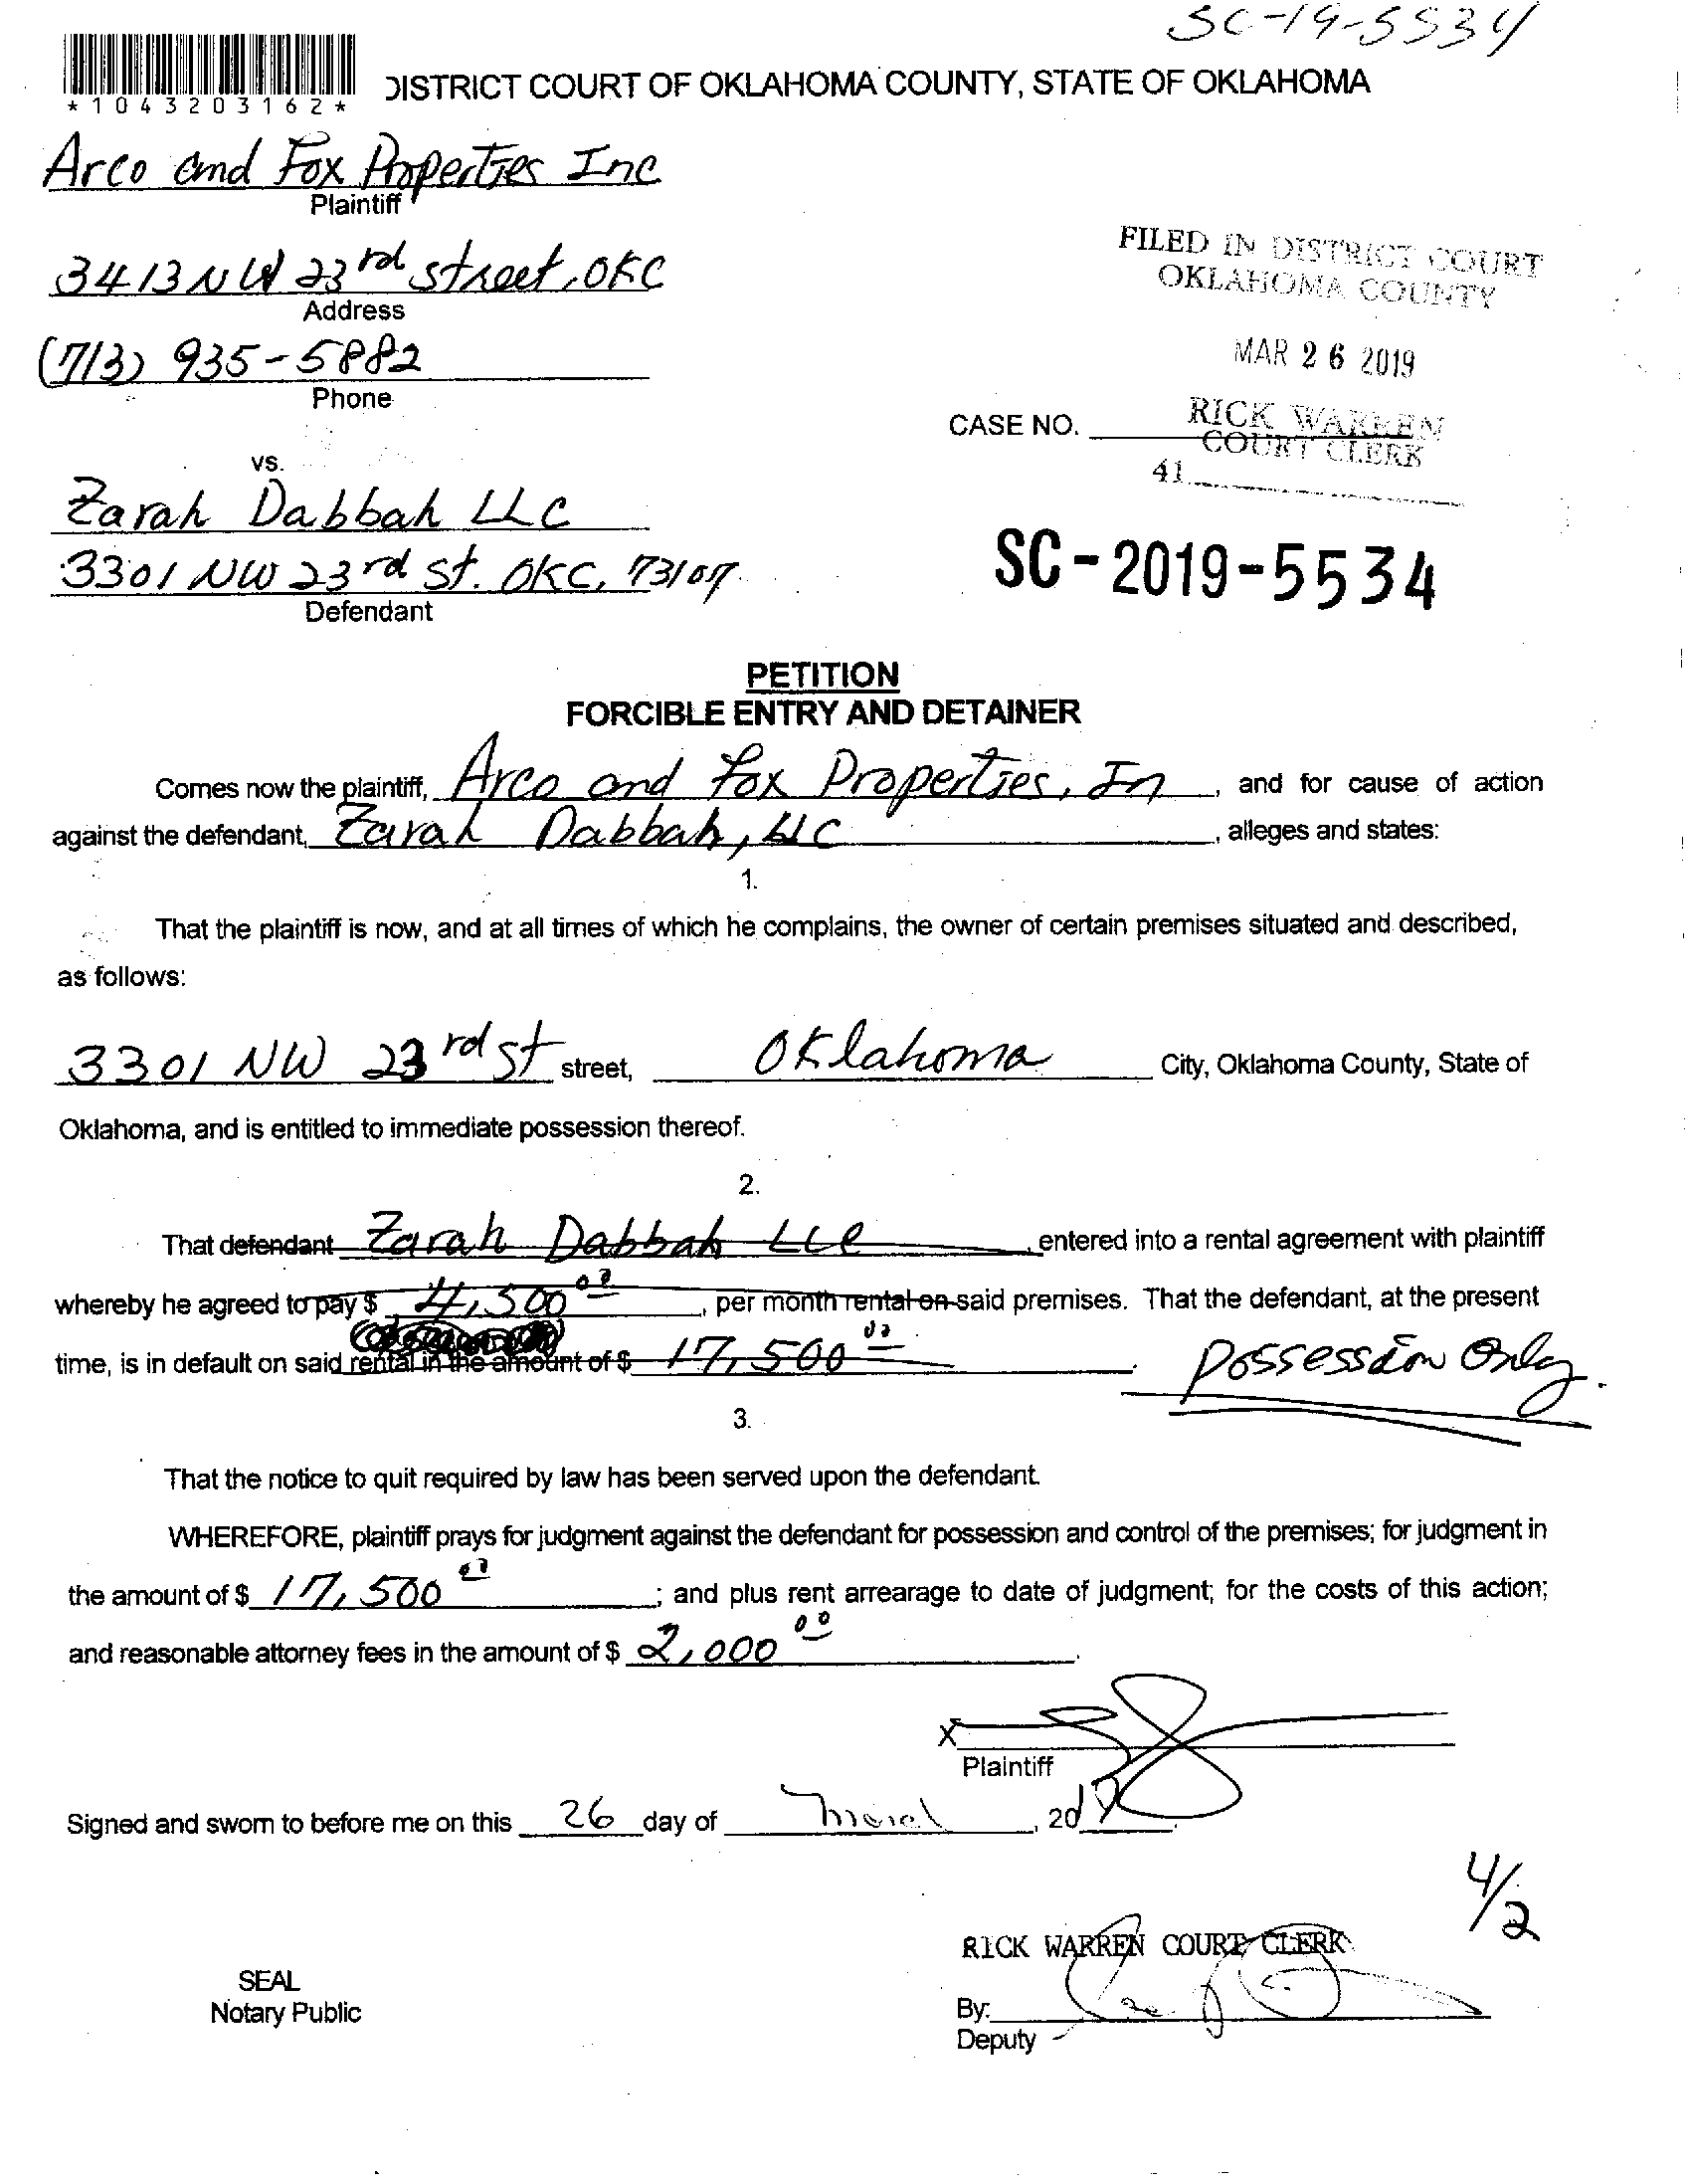 SC-19-5534
*1043203162*
DISTRICT COURT OF OKLAHOMA COUNTY, STATE OF OKLAHOMA
Arco and Fox Properties Inc
Plaintiff
3413 NW 23rd street, OKC
Address
(713) 935-5882
Phone
FILED IN DISTRICT COURT
OKLAHOMA COUNTY
MAR 26 2019
RICK WARREN
COURT CLERK
41
CASE NO.
vs.
Zarah Dabbah LLC
3301 NW 23rd St. OKC, 73107
Defendant
SC-2019-5534
PETITION
FORCIBLE ENTRY AND DETAINER
Comes now the plaintiff, Arco and Fox Properties, In, and for cause of action
against the defendant, Zarah Dabbah, LLC, alleges and states:
1.
That the plaintiff is now, and at all times of which he complains, the owner of certain premises situated and described,
as follows:
3301 NW 23rd St street, Oklahoma City, Oklahoma County, State of
Oklahoma, and is entitled to immediate possession thereof.
2.
That defendant Zarah Dabbah LLC, entered into a rental agreement with plaintiff
whereby he agreed to pay $ 4,500 00, per month rental on said premises. That the defendant, at the present
time, is in default on said rental in the amount of $ 17,500 00. Possession Only.
3.
That the notice to quit required by law has been served upon the defendant.
WHEREFORE, plaintiff prays for judgment against the defendant for possession and control of the premises; for judgment in
the amount of $ 17,500 00; and plus rent arrearage to date of judgment; for the costs of this action;
and reasonable attorney fees in the amount of $ 2,000 00.
X
Plaintiff
Signed and sworn to before me on this 26 day of March, 2019.
4/2
RICK WARREN COURT CLERK
SEAL
Notary Public
By:
Deputy